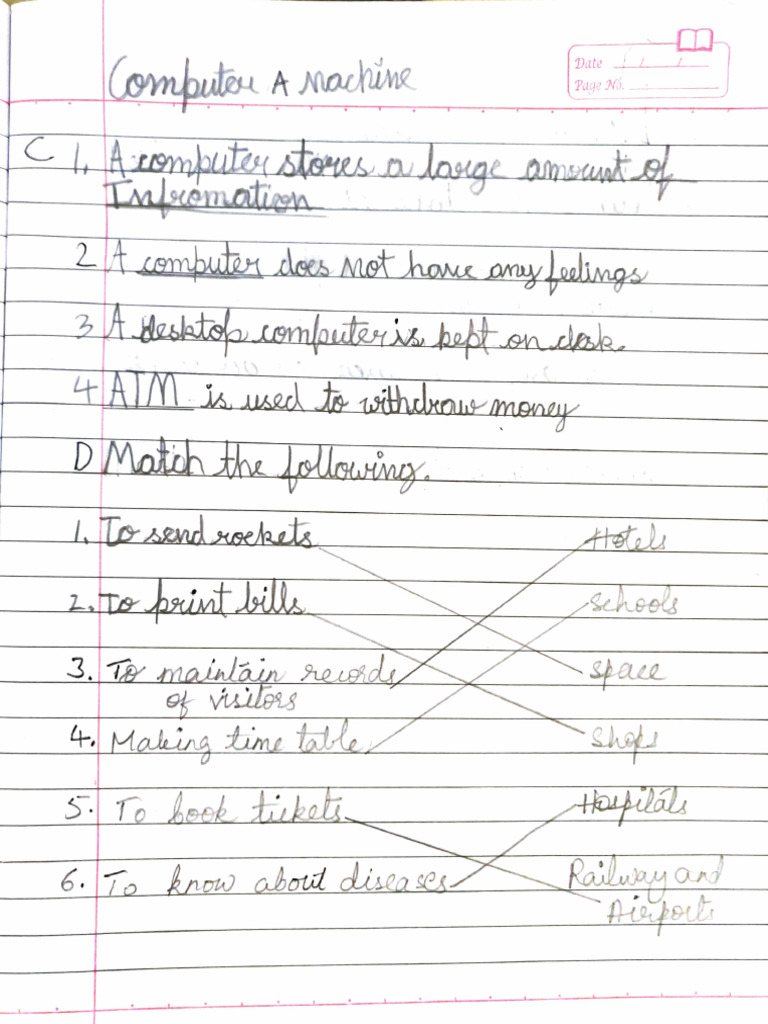 Computer A Machine
Date / / /
Page No.
C 1. A computer stores a large amount of
Infromation
2 A computer does not have any feelings
3 A desktop computer is kept on desk.
4 ATM is used to withdraw money
D Match the following.
1. To send rockets Hotels
2. To print bills schools
3. To maintain records space
of visitors
4. Making time table shops
5. To book tickets Hospitals
6. To know about diseases Railway and
Airports